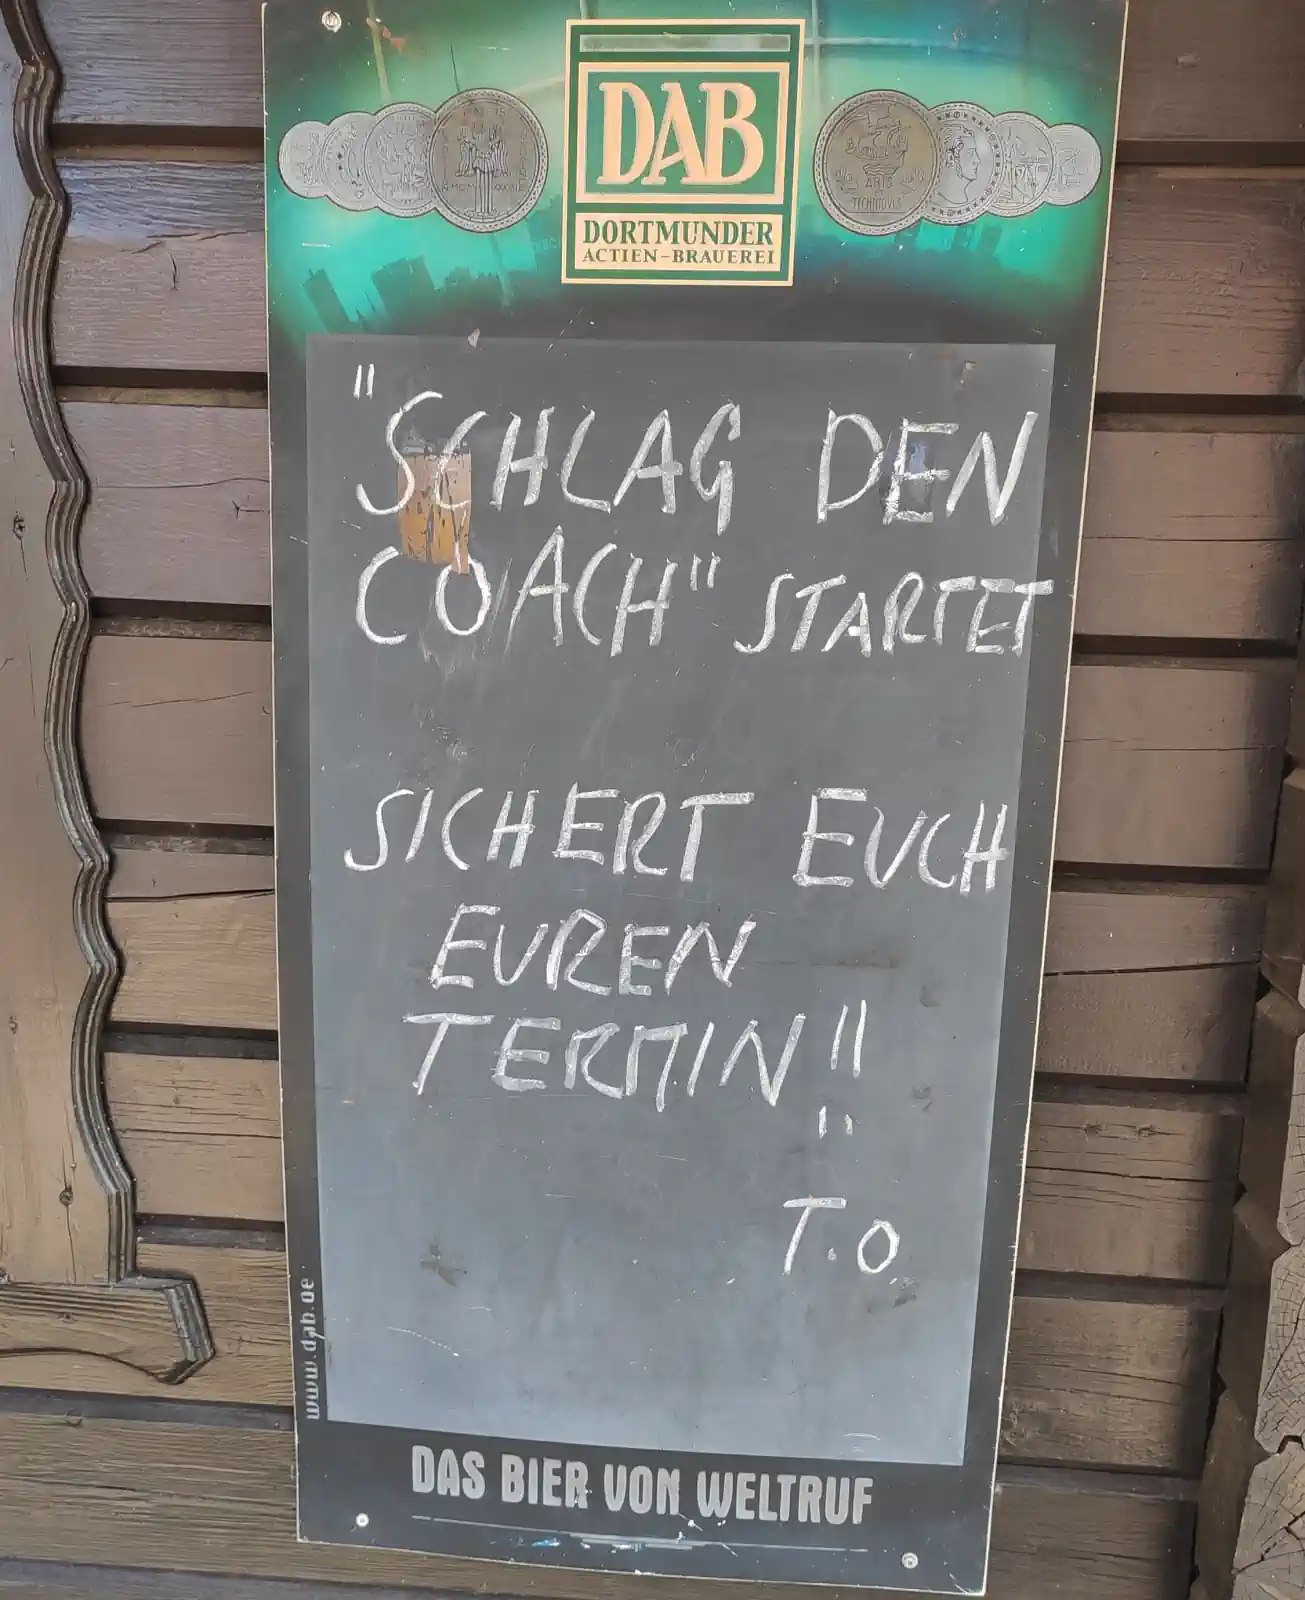 DAB
DORTMUNDER
ACTIEN-BRAUEREI
ARTS
TECHNOVIS
"SCHLAG DEN
COACH" STARTET
SICHERT EUCH
EUREN
TERMIN!!
T.O
www.dab.de
DAS BIER VON WELTRUF